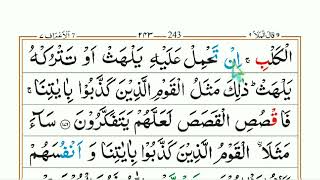 قال الملا ٩ ٢٤٣ 243 الاعراف ٧
الْكَلْبِ ۚ اِنْ تَحْمِلْ عَلَيْهِ يَلْهَثْ اَوْ تَتْرُكْهُ
يَلْهَثْ ؕ ذٰلِكَ مَثَلُ الْقَوْمِ الَّذِيْنَ كَذَّبُوْا بِاٰيٰتِنَا ۚ
فَاقْصُصِ الْقَصَصَ لَعَلَّهُمْ يَتَفَكَّرُوْنَ ﴿۱۷۶﴾ سَآءَ
مَثَلَاۨ الْقَوْمُ الَّذِيْنَ كَذَّبُوْا بِاٰيٰتِنَا وَ اَنْفُسَهُمْ